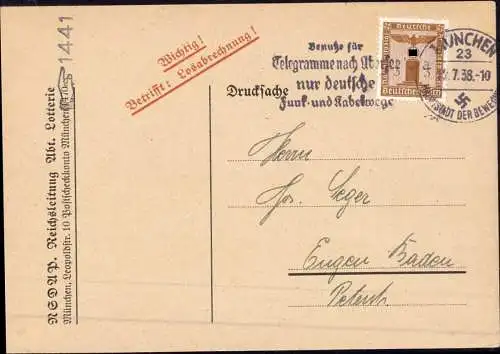 1441
NSDAP. Reichsleitung Abt. Lotterie
München, Leopoldstr. 10 Postscheckkonto München
Wichtig!
Betrifft: Losabrechnung!
Drucksache
Benutze für
Telegramme nach
nur deutsche
Funk- und Kabelwege
Deutsches
3 3
Deutsches Reich
MÜNCHEN
23
7.38.-10
HAUPTSTADT DER BEWEGUNG
Herrn
Jos. Seger
Engen Baden